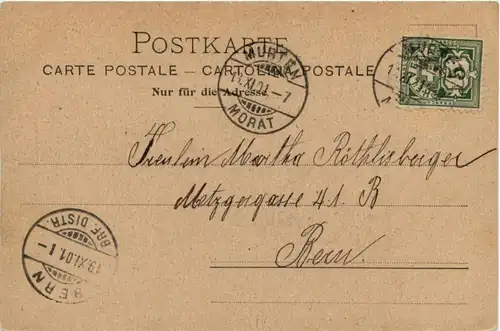 POSTKARTE
CARTE POSTALE — CARTOLINA POSTALE
Nur für die Adresse.
MURTEN
XI.01.-7
MORAT
5
Fräulein Martha Röthlisberger
Metzgergasse 41. B
Bern.
BRF. DISTR.
19.XI.01.1-
BERN